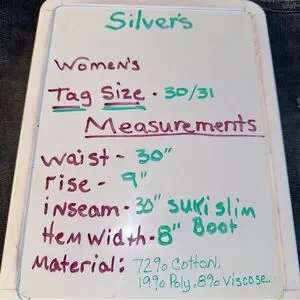 Silver's
Women's
Tag Size - 30/31
Measurements
Waist - 30"
rise - 9"
inseam - 30" Suki slim
Hem Width - 8" Boot
Material: 72% Cotton,
19% Poly, 8% Viscose